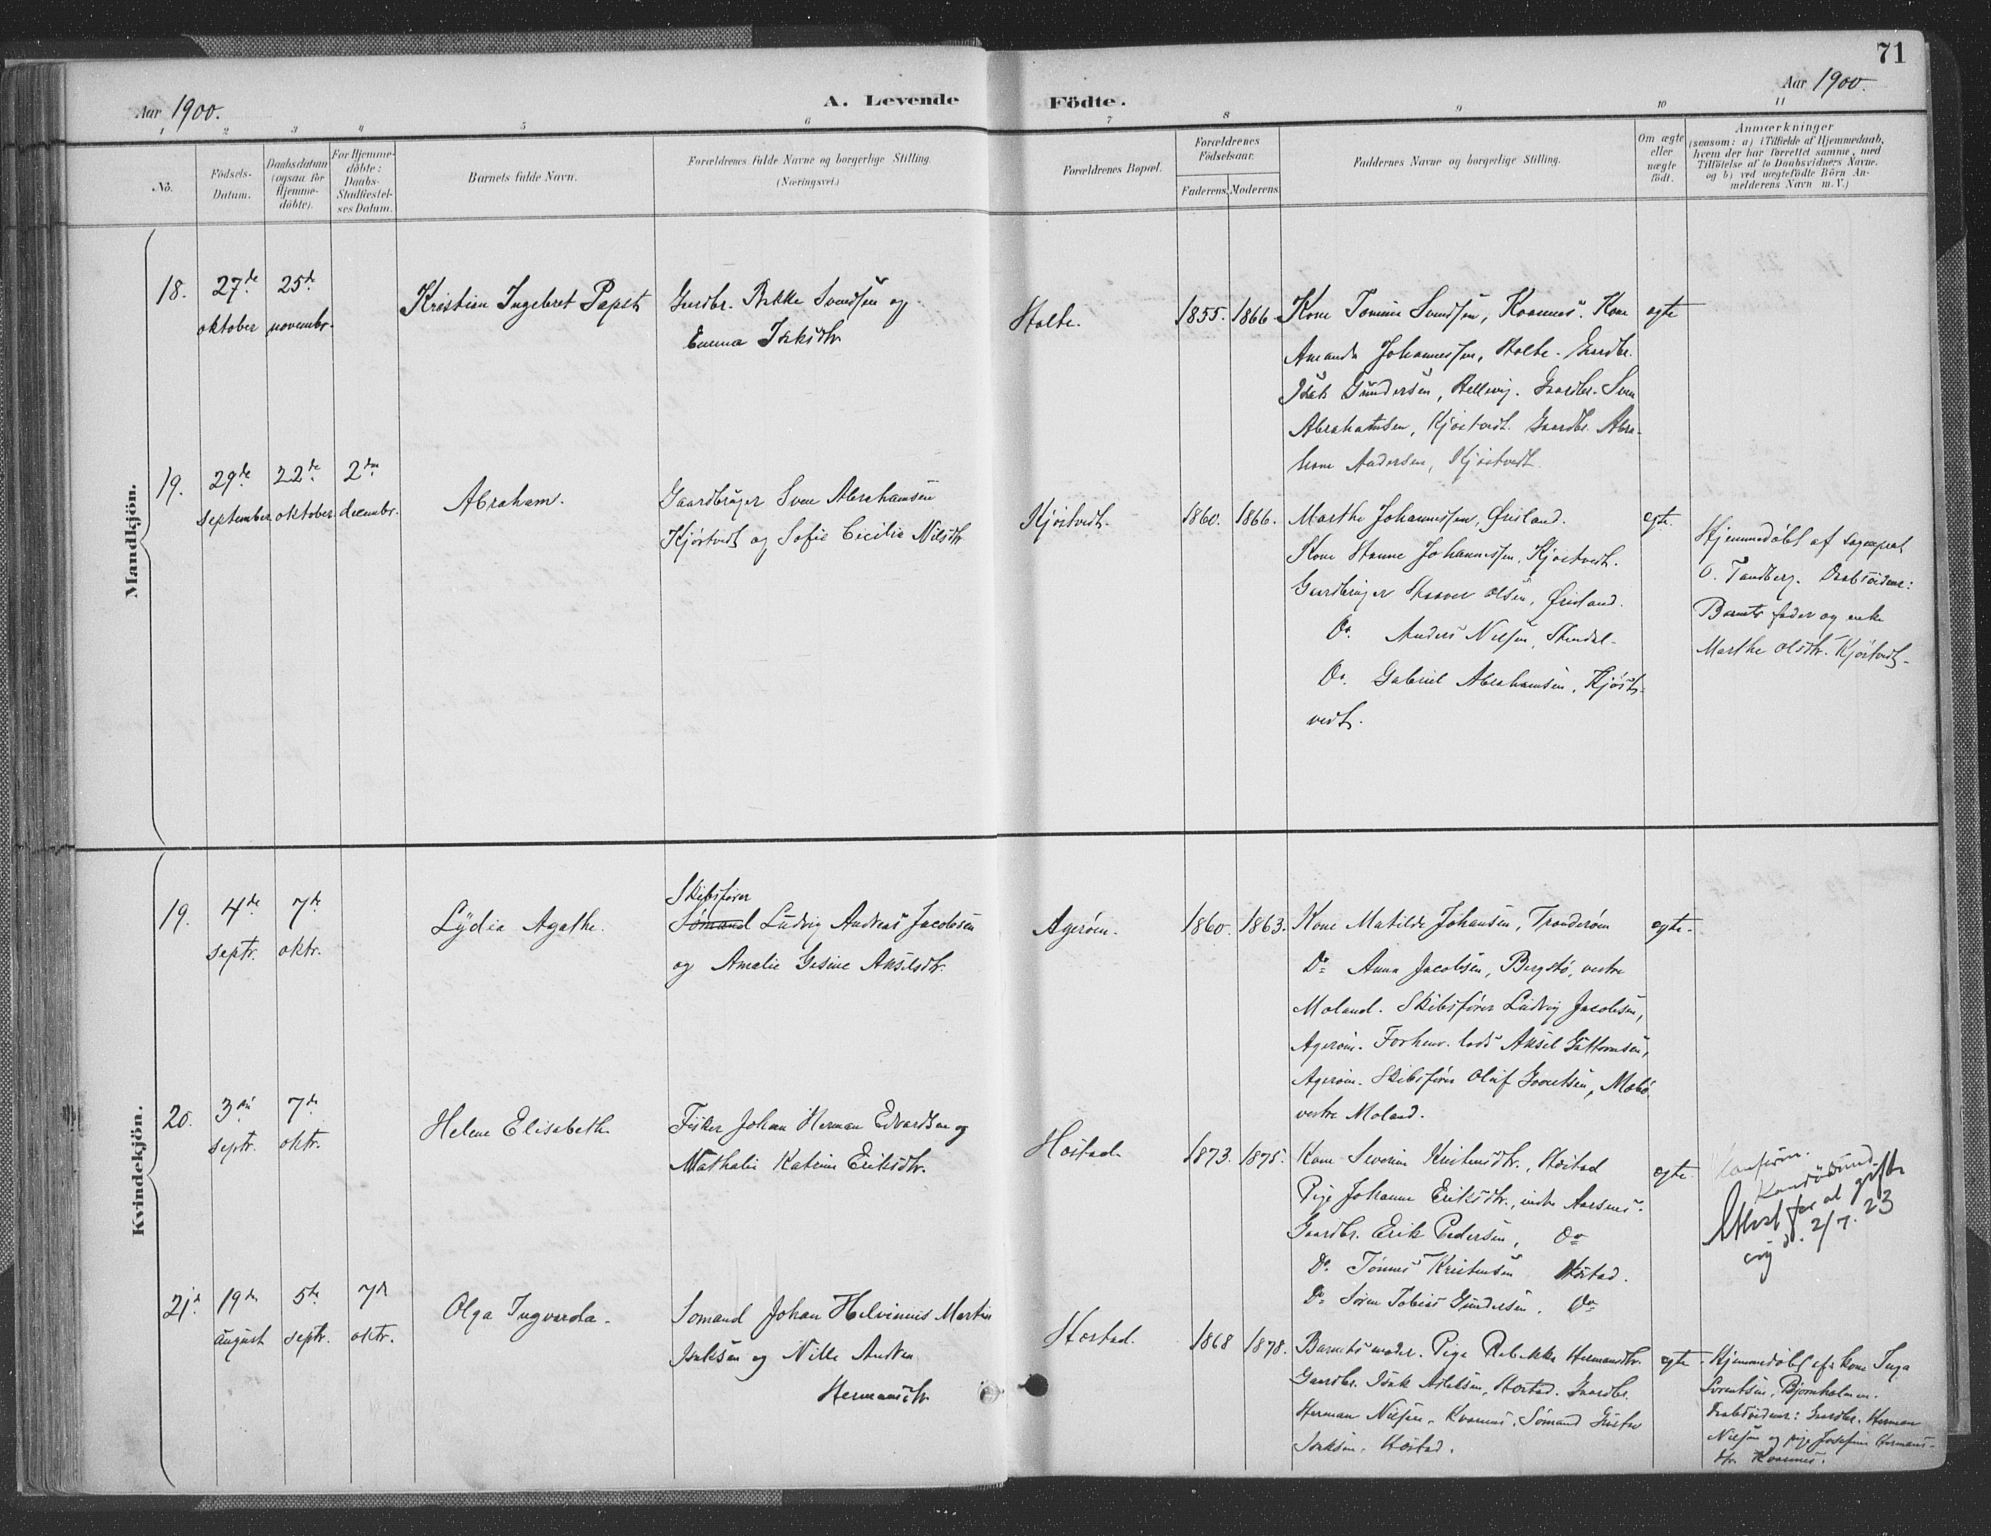 71
Aar 1900.
A. Levende Födte.
Aar 1900.
1 2 3 4 5 6 7 8 9 10 11
No.
Födsels-Datum.
Daabsdatum (ogsaa for Hjemme-döbte).
For Hjemme-döbte: Daabs-Stadfæstel-ses Datum.
Barnets fulde Navn.
Forældrenes fulde Navne og borgerlige Stilling.
(Næringsvei.)
Forældrenes Bopæl.
Forældrenes Födselsaar.
Faderens. Moderens.
Faddernes Navne og borgerlige Stilling.
Om ægte eller uægte födt.
Anmærkninger
(saasom: a) i Tilfælde af Hjemmedaab,
hvem der har forrettet samme, med
Tilföielse af to Daabsvidners Navne.
og b) ved uægtefödte Börn An-
melderens Navn m. V.)
Mandkjön.
18. 27de oktober 25de novembr.
Kristian Ingebret
Gardbr. Svendsen og
Emma Isaksdtr.
Holte.
1855. 1866.
Kone Tomine Svendsen, Kvannes. Kone
Amanda Johannessen, Holte. Gaardbr.
Isak Gundersen, Hellevig. Gaardbr. Sven
Abrahamsen, Kjøstvedt. Gaardbr. Abra-
ham Andersen, Kjøstvedt.
egte
19. 29de september 22de oktober 2den decembr.
Abraham.
Gaardbruger Sven Abrahamsen
Kjøstvedt og Sofie Cecilie Nilsdtr.
Kjøstvedt.
1860. 1866.
Marthe Johannessen, Øvisland.
Kone Hanne Johannessen, Kjøstvedt.
Gaardbruger Olsen, Øvisland.
Do. Anders Nilsen,
Do. Gabriel Abrahamsen, Kjøst-
vedt.
egte.
Hjemmedøbt af sogneprest
O. Tandberg. Daabsvidner:
Barnets fader og enke
Marthe Olsdtr. Kjøstvedt.
Kvindekjön.
19. 4de septr. 7de oktr.
Lydia Agathe.
Skibsfører
Sømand Ludvig Andreas Jacobsen
og Amalie Gesine Akselsdtr.
Agerøen.
1860. 1863.
Kone Matilde Johansen,
Do Anna Jacobsen, Bergstø, vestre
Moland. Skibsfører Ludvig Jacobsen,
Agerøen. Forhenv. lods Aksel Guttormsen,
Agerøen. Skibsfører Oluf
vestre Moland.
egte.
20. 3die septr. 7de oktr.
Helene Elisabeth.
Fisker Johan Herman Edvardsen og
Nathalie Katrine Eriksdtr.
Høstad.
1873. 1875.
Kone Severine Kristensdtr., Høstad
Pige Johanne Eriksdtr., indre Aarsnes.
Gaardbr. Erik Pedersen, Do
Do. Tønnes Kristensen Høstad.
Do Søren Tobias Gundersen. Do
egte.
2/7. 23
21. 19de august 5te septr. 7de oktr.
Olga Ingvarda.
Sømand Johan Helvinius Martin
Isaksen og Nille Andrea
Hermansdtr.
Høstad.
1868 1878.
Barnets moder. Pige Rebekka Hermansdtr.
Gaardbr. Isak Høstad. Gaardbr.
Herman Nilsen, Kvannes. Sømand Gustav
Isaksen, Høstad.
egte.
Hjemmedøbt af: kone Inga
Sørensen, Bjørnholmen.
Daabsvidner: Gaardbr. Herman
Nilsen og pige Josefine Hermans-
dtr. Kvannes.